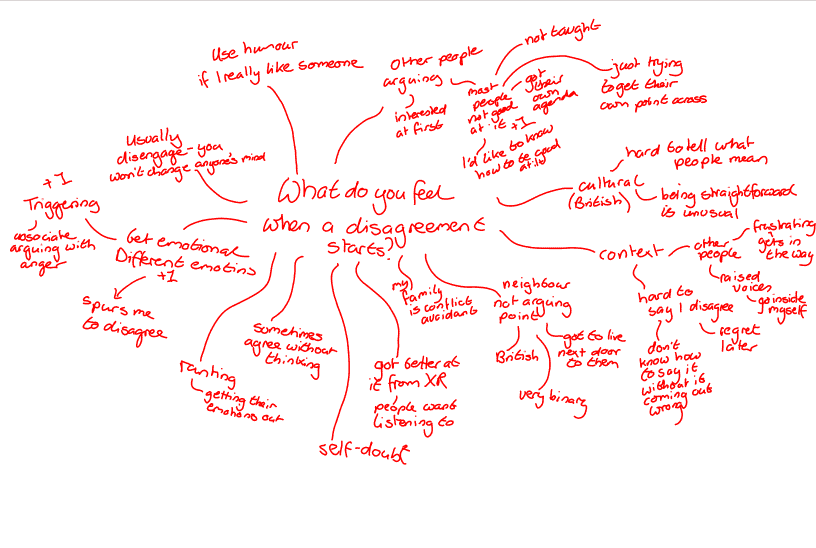 What do you feel
when a disagreement
starts?
Use humour
if I really like someone
Other people
arguing
interested
at first
most
people
not good
at it +1
not taught
got
their
own
agenda
just trying
to get their
own point across
I'd like to know
how to be good
at it
cultural
(British)
hard to tell what
people mean
being straightforward
is unusual
context
other
people
frustrating
gets in
the way
raised
voices
go inside
myself
hard to
say I disagree
regret
later
don't
know how
to say it
without it
coming out
wrong
neighbour
not arguing
point
British
very binary
got to live
next door
to them
my
family
is conflict
avoidant
got better at
it from XR
people want
listening to
self-doubt
sometimes
agree without
thinking
ranting
getting their
emotions out
Get emotional
Different emotins
+1
spurs me
to disagree
+1
Triggering
associate
arguing with
anger
Usually
disengage - you
won't change anyone's mind